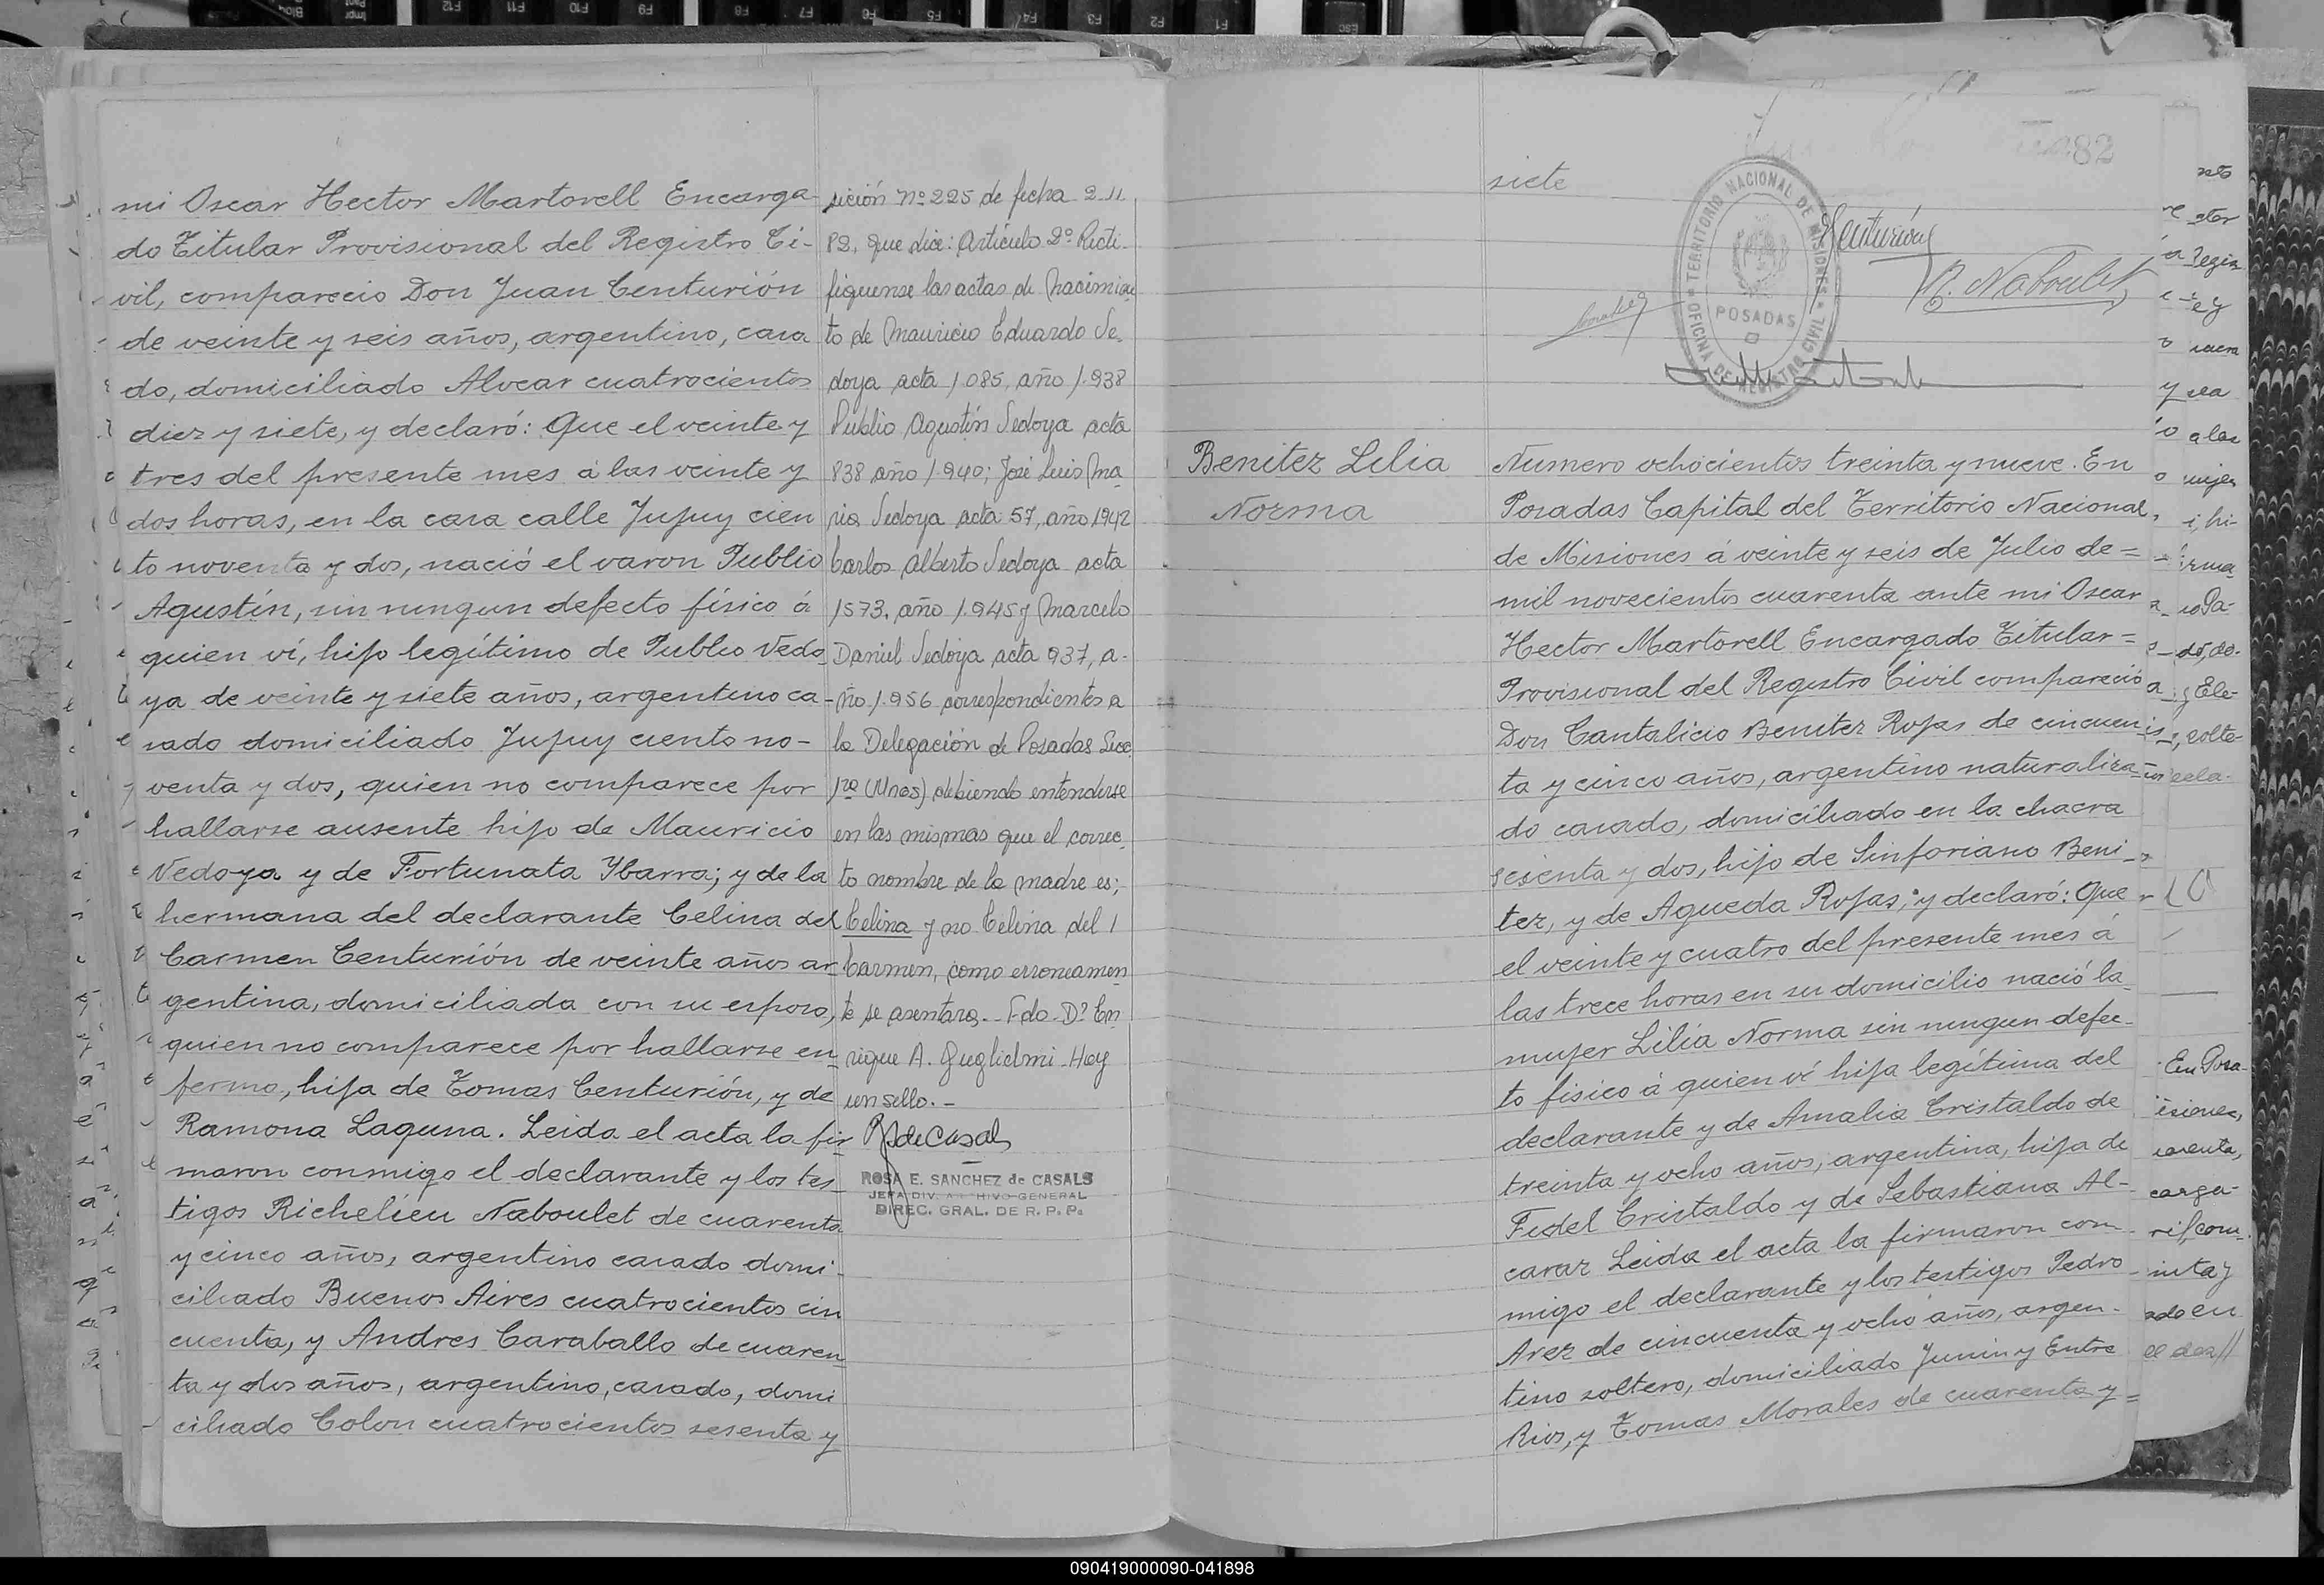 mi Oscar Hector Martorell Encarga-
do Titular Provisional del Registro Ci-
vil, comparecio Don Juan Centurión
de veinte y seis años, argentino, casa
do, domiciliado Alvear cuatrocientos
diez y siete, y declaró: Que el veinte y
tres del presente mes á las veinte y
dos horas, en la casa calle Jujuy cien
to noventa y dos, nació el varon Publio
Agustín, sin ningun defecto físico á
quien ví, hijo legítimo de Publio Vedo
ya de veinte y siete años, argentino ca-
sado domiciliado Jujuy ciento no-
venta y dos, quien no comparece por
hallarse ausente hijo de Mauricio
Vedoya y de Fortunata Ybarra; y de la
hermana del declarante Celina del
Carmen Centurión de veinte años ar-
gentina, domiciliada con su esposo,
quien no comparece por hallarse en-
fermo, hija de Tomas Centurión, y de
Ramona Laguna. Leida el acta la fir
maron conmigo el declarante y los tes-
tigos Richelieu Naboulet de cuarenta
y cinco años, argentino casado domi-
ciliado Buenos Aires cuatrocientos cin
cuenta, y Andres Caraballo de cuaren
ta y dos años, argentino, casado, domi
ciliado Colon cuatrocientos sesenta y
sición nº 225 de fecha 2.11.
82, que dice: Artículo 2º Recti-
fiquense las actas de nacimien
to de Mauricio Eduardo Ve-
doya acta 1.085, año 1.938
Publio Agustín Vedoya acta
838 año 1.940; José Luis Ma
ria Vedoya acta 57, año 1942
Carlos Alberto Vedoya acta
1573, año 1.945 y Marcelo
Daniel Vedoya acta 937, a-
ño 1.956 correspondientes a
la Delegación de Posadas Secc
1ra (Mnes) debiendo entenderse
en las mismas que el correc
to nombre de la madre es;
Celina y no Celina del
Carmen, como erroneamen
te se asentara. Fdo. Dr En
rique A. Guglielmi - Hay
un sello. -
ROSA E. SANCHEZ de CASALS
JEFA DIV. ARCHIVO GENERAL
DIREC. GRAL. DE R. P. P.
82
siete
Centurión
R. Naboulet
TERRITORIO NACIONAL DE MISIONES
POSADAS
OFICINA DE REGISTRO CIVIL
Benitez Lilia
Norma
Numero ochocientos treinta y nueve. En
Posadas Capital del Territorio Nacional
de Misiones á veinte y seis de Julio de =
mil novecientos cuarenta ante mi Oscar
Hector Martorell Encargado Titular =
Provisional del Registro Civil compareció
Don Cantalicio Benitez Rojas de cincuen
ta y cinco años, argentino naturaliza-
do casado, domiciliado en la chacra
sesenta y dos, hijo de Sinforiano Beni-
tez, y de Agueda Rojas; y declaró: Que
el veinte y cuatro del presente mes á
las trece horas en su domicilio nació la
mujer Lilia Norma sin ningun defec-
to fisico á quien ví hija legítima del
declarante y de Amalia Cristaldo de
treinta y ocho años, argentina, hija de
Fidel Cristaldo y de Sebastiana Al-
caraz Leida el acta la firmaron con
migo el declarante y los testigos Pedro
Arez de cincuenta y ocho años, argen-
tino soltero, domiciliado Junin y Entre
Rios, y Tomas Morales de cuarenta y =
090419000090-041898